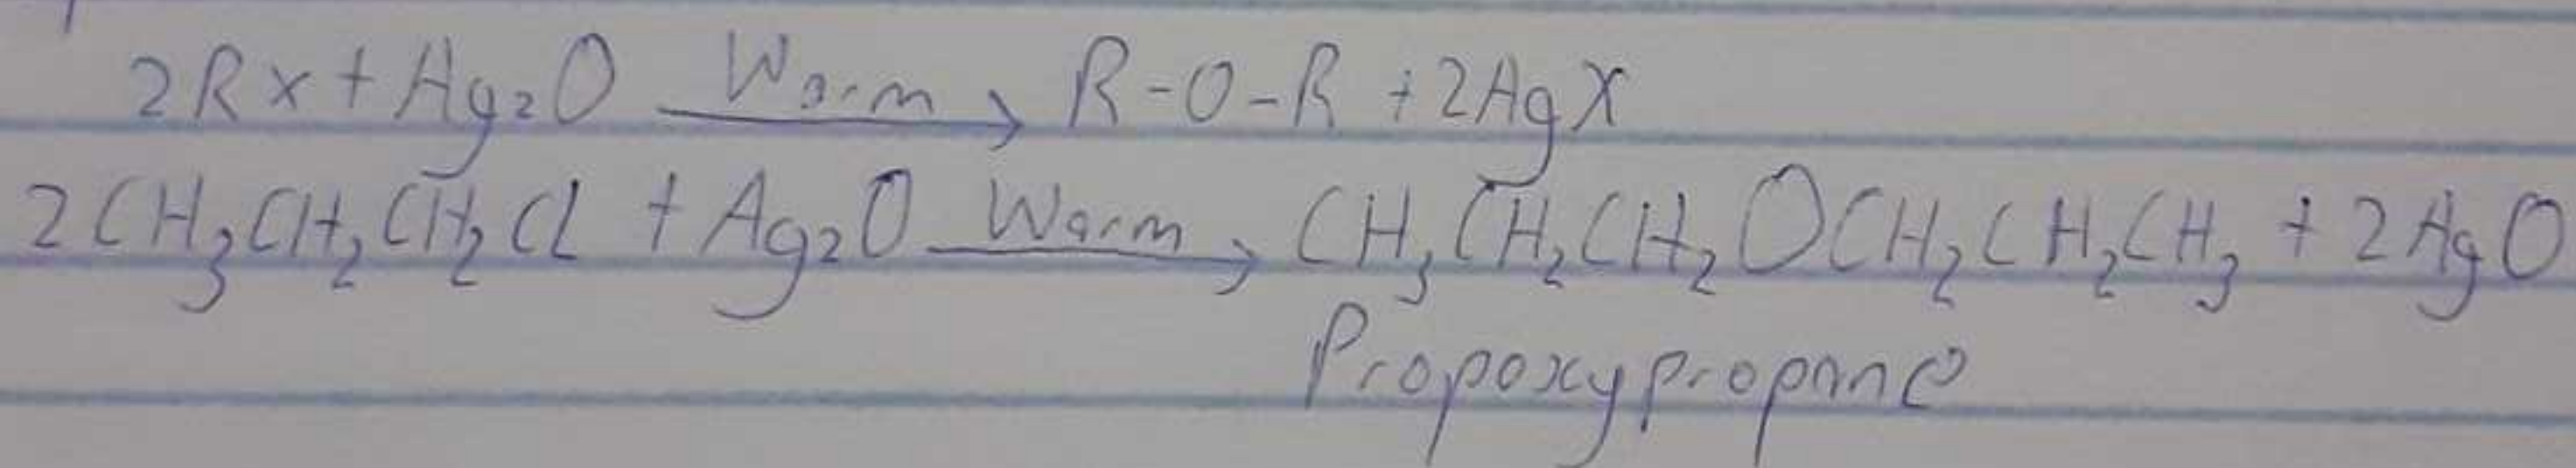 2Rx + Ag₂O Warm → R-O-R + 2AgX
2CH₃CH₂CH₂Cl + Ag₂O Warm → CH₃CH₂CH₂OCH₂CH₂CH₃ + 2AgO
Propoxypropane